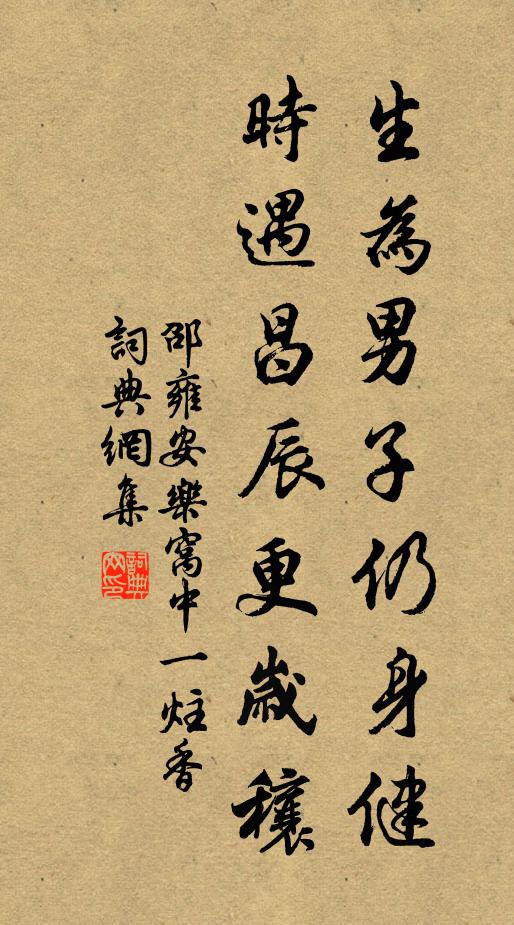 生為男子仍身健
時遇昌辰更歲穰
邵雍安樂窩中一炷香
詞典網集
詞典網印